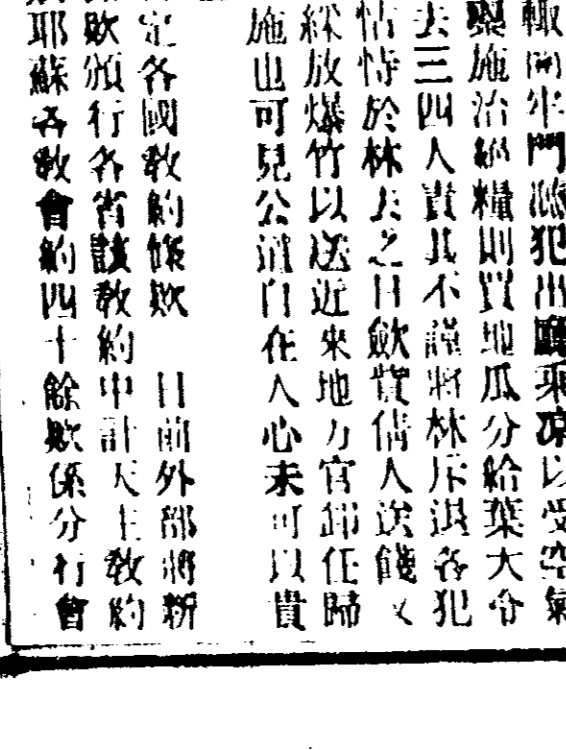 輙開半門縱犯出廳乘凉以受空氣
獎施治絕糧則買地瓜分給葉大令
去三四人責其不謹將林斥退各犯
怙恃於林去之日歛貲倩人送餞
綵放爆竹以送近來地方官卸任歸
施也可見公道自在人心未可以貴
定各國敎約條欵　目前外部將新
欵頒行各省該敎約中計天主敎約
耶蘇各敎會約四十餘欵係分行會